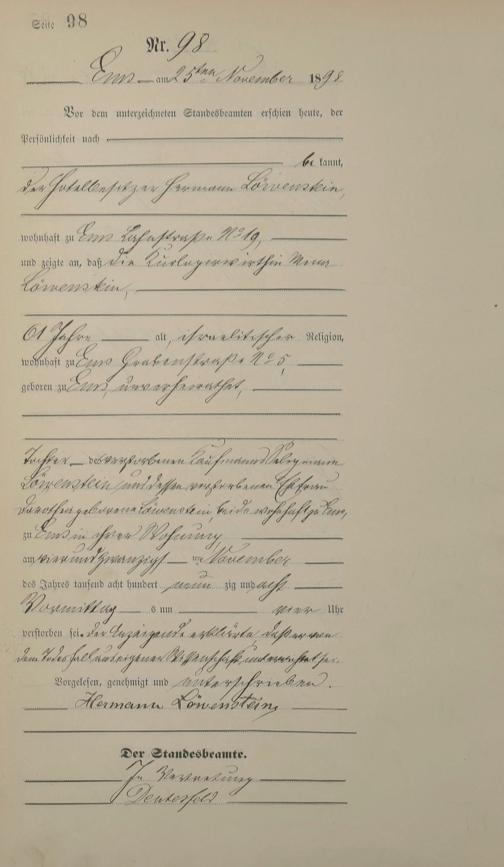 Seite 98
Nr. 98
Ems am 25ten November 1898
Vor dem unterzeichneten Standesbeamten erschien heute, der
Persönlichkeit nach
be kannt,
der Hotelbesitzer Hermann Löwenstein,
wohnhaft zu Ems Lahnstraße No 19,
und zeigte an, daß die
Löwenstein,
61 Jahre alt, israelitischer Religion,
wohnhaft zu Ems Grabenstraße No 5,
geboren zu Ems, unverheirathet,
Tochter des verstorbenen Kaufmanns Seligmann
Löwenstein und dessen verstorbenen Ehefrau
Dorothea geborene Löwenstein, beide wohnhaft zu Ems,
zu Ems in ihrer Wohnung,
am vierundzwanzigsten November
des Jahres tausend acht hundert neun zig und acht
Vormittag s um vier Uhr
verstorben sei. Der Anzeigende erklärte, daß er von
dem Todesfall aus eigener Wissenschaft unterrichtet sei.
Vorgelesen, genehmigt und unterschrieben.
Hermann Löwenstein,
Der Standesbeamte.
In Vertretung